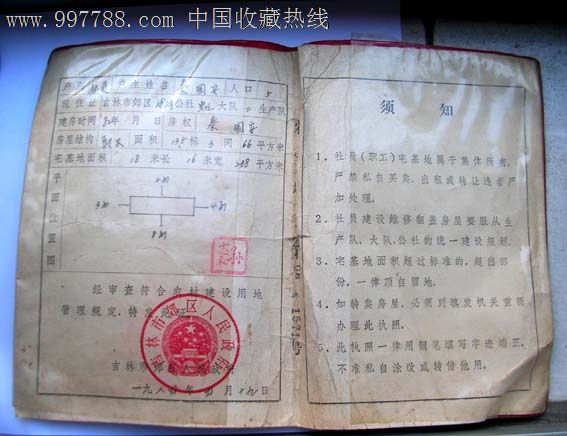 www.997788.com 中国收藏热线
户主姓名 人口 5
现住址 吉林市郊区 公社 大队 二 生产队
建房时间 年 月 日 房权 秦国安
房屋结构 面积 栋 3 间 66 平方米
宅基地面积 18 米长 16 米宽 288 平方米
平面位置图
2m
3m
4m
8m
经审查符合农村建设用地
管理规定，特发此证
吉林市郊区人民政府
吉林市郊区人民政府
一九八 年 月 日
须知
1．社员（职工）宅基地属于集体所有，
严禁私自买卖、出租或转让违者严
加处理。
2．社员建设维修翻盖房屋要服从生
产队、大队、公社的统一建设规划。
3．宅基地面积超过标准的，超出部
份，一律顶自留地。
4．如转卖房屋，必须到填发机关重新
办理此执照。
5．此执照一律用钢笔填写字迹端正，
不准私自涂改或转借他用。